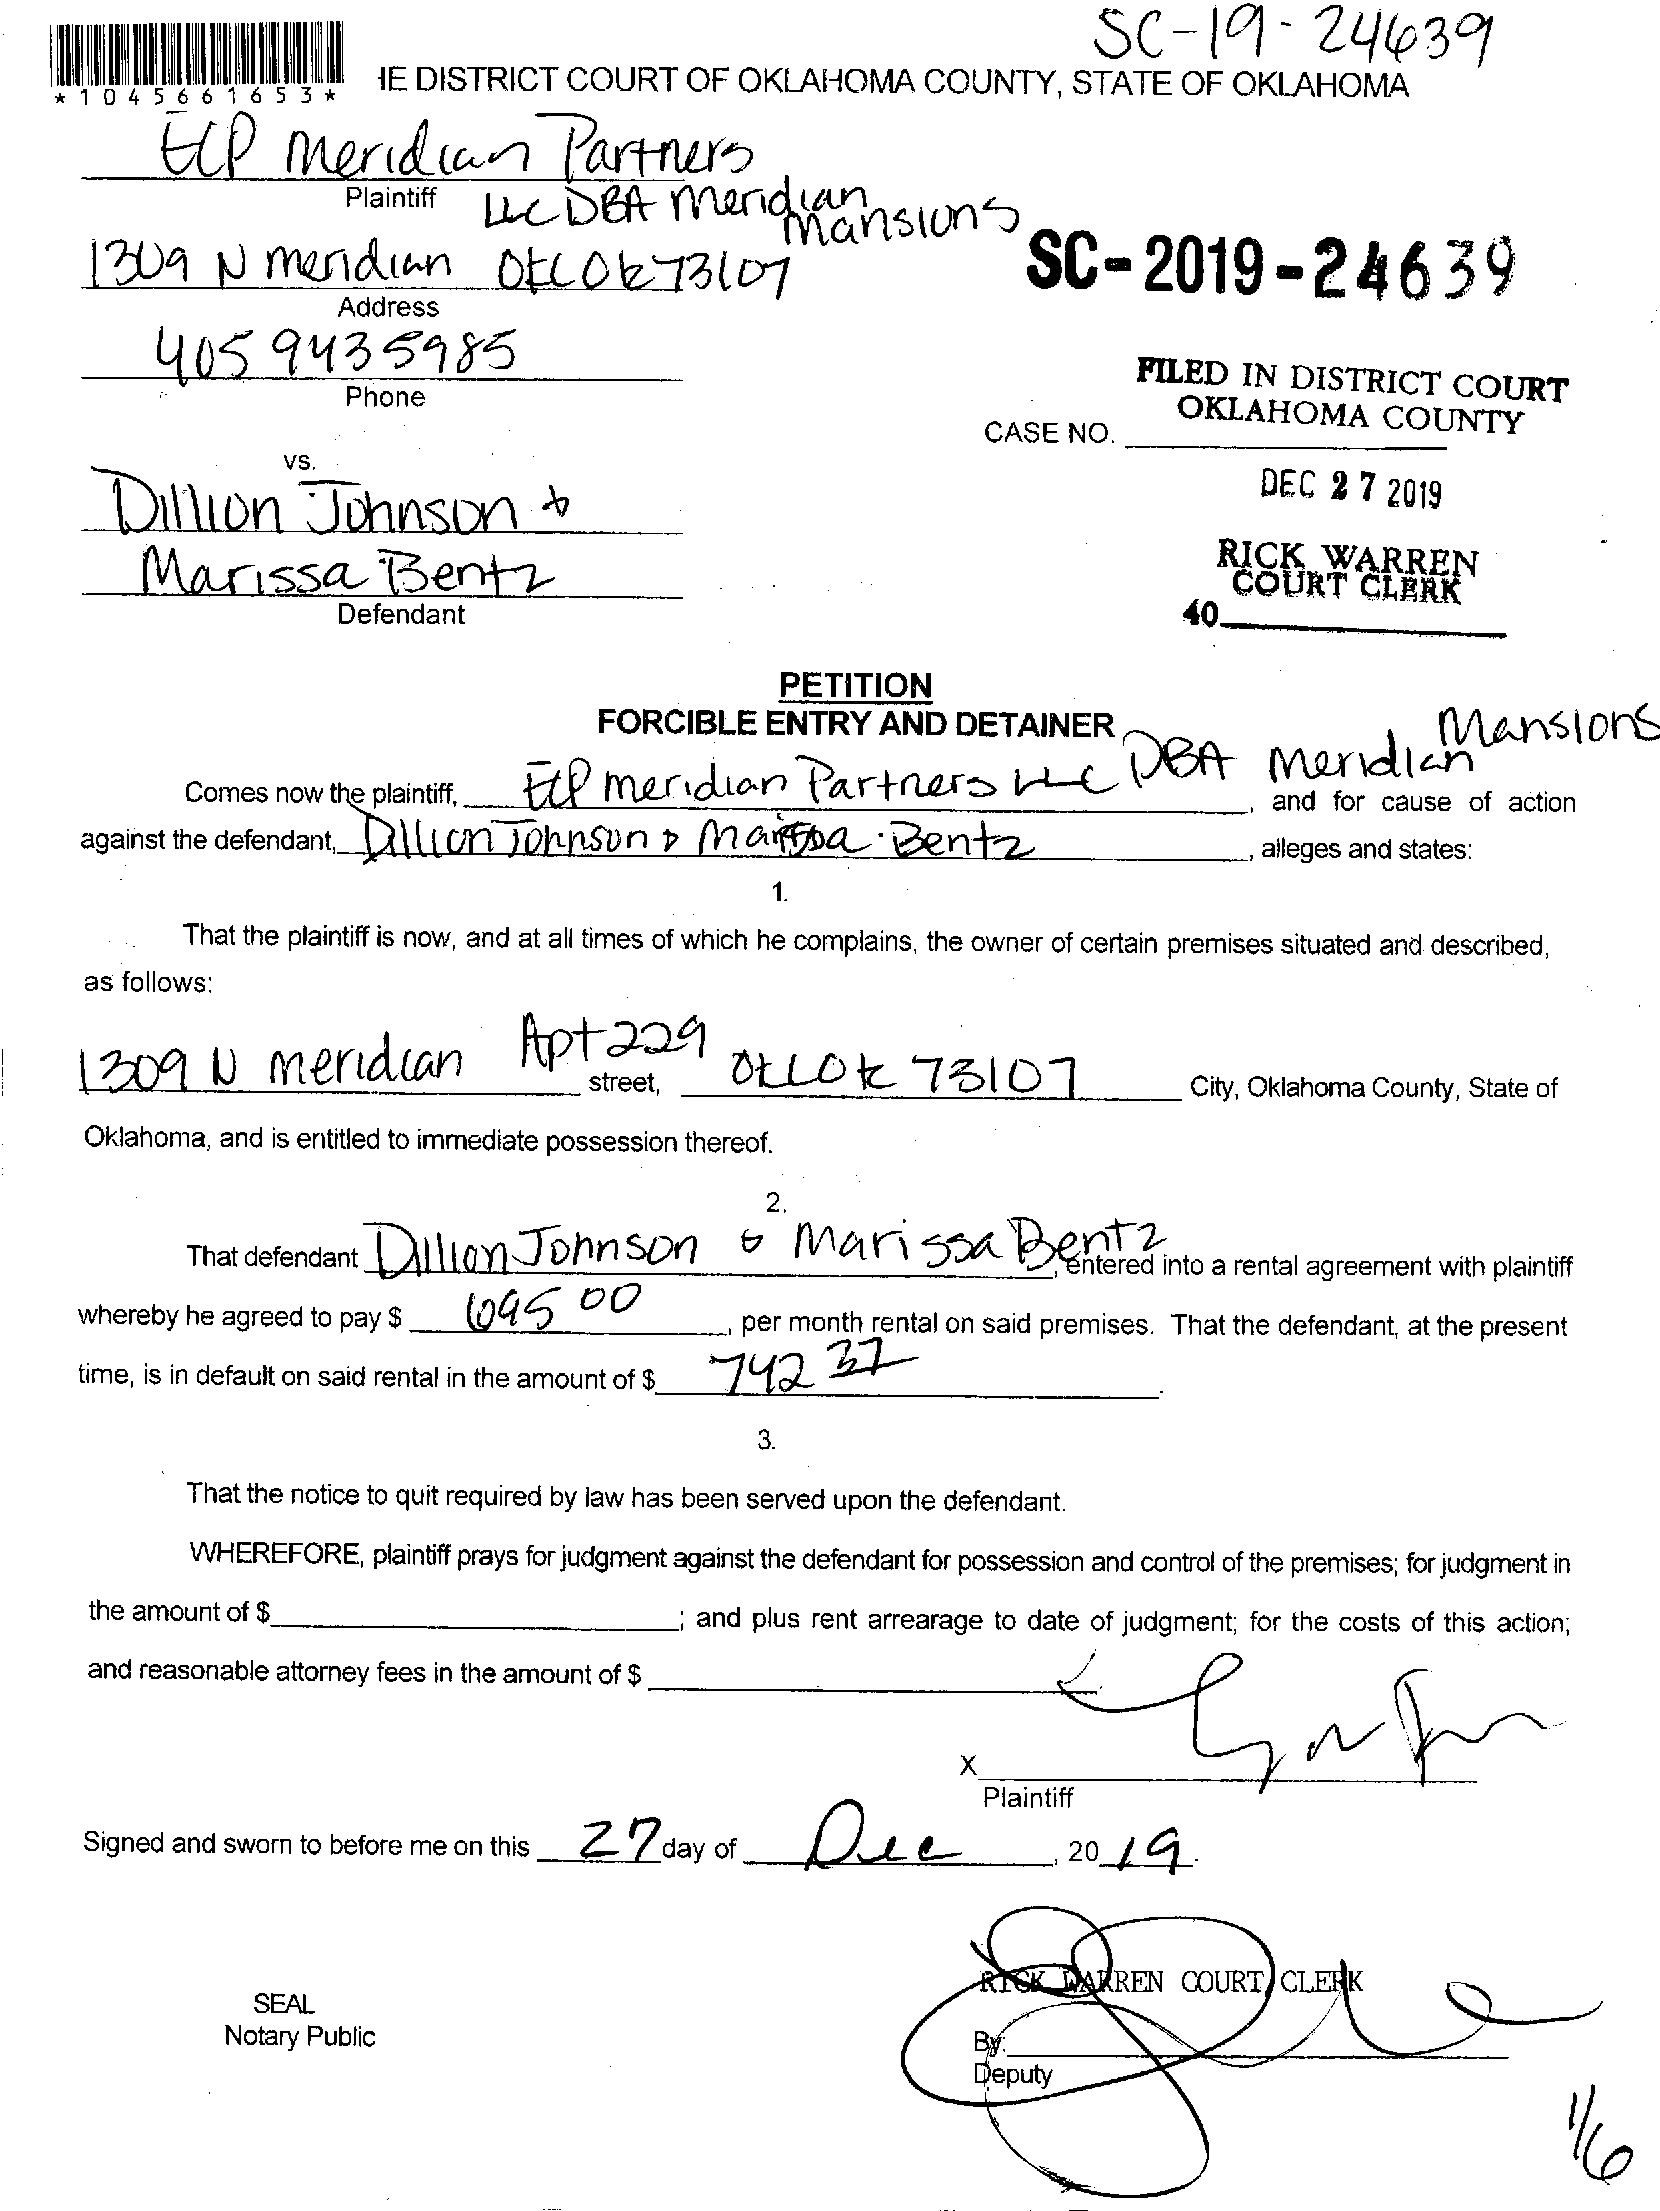 SC-19-24639
*1045661653*
HE DISTRICT COURT OF OKLAHOMA COUNTY, STATE OF OKLAHOMA
ECP Meridian Partners
Plaintiff LLC DBA Meridian
Mansions
1309 N Meridian OKC OK 73107
SC-2019-24639
Address
405 943 5985
Phone
FILED IN DISTRICT COURT
OKLAHOMA COUNTY
CASE NO.
vs.
DEC 27 2019
Dillion Johnson &
RICK WARREN
COURT CLERK
Marissa Bentz
Defendant
40
PETITION
FORCIBLE ENTRY AND DETAINER
Comes now the plaintiff, ECP Meridian Partners LLC DBA Meridian Mansions, and for cause of action
against the defendant, Dillion Johnson & Marissa Bentz, alleges and states:
1.
That the plaintiff is now, and at all times of which he complains, the owner of certain premises situated and described,
as follows:
1309 N Meridian Apt 229 street, OKC OK 73107 City, Oklahoma County, State of
Oklahoma, and is entitled to immediate possession thereof.
2.
That defendant Dillion Johnson & Marissa Bentz, entered into a rental agreement with plaintiff
whereby he agreed to pay $ 695 00, per month rental on said premises. That the defendant, at the present
time, is in default on said rental in the amount of $ 742 37.
3.
That the notice to quit required by law has been served upon the defendant.
WHEREFORE, plaintiff prays for judgment against the defendant for possession and control of the premises; for judgment in
the amount of $ ; and plus rent arrearage to date of judgment; for the costs of this action;
and reasonable attorney fees in the amount of $ .
X
Plaintiff
Signed and sworn to before me on this 27 day of Dec, 2019.
RICK WARREN COURT CLERK
SEAL
Notary Public
By:
Deputy
1/6